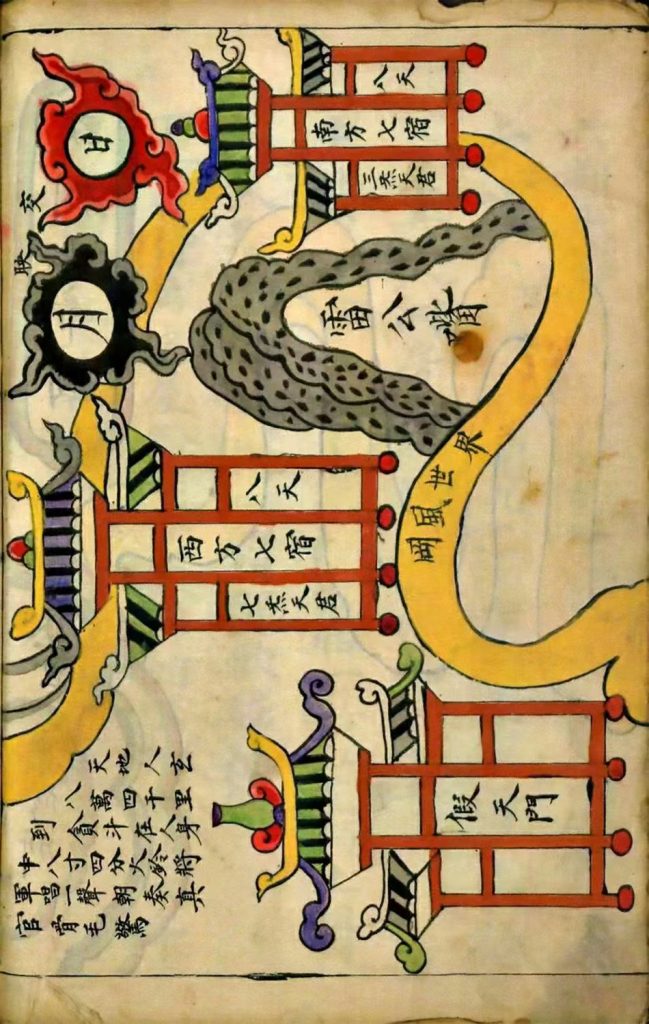 日
交
映
月
八天
南方七宿
三炁天君
雷公嘴
罡風世界
八天
西方七宿
七炁天君
天地人玄
八萬四千里
到貪斗在人身
中八寸四分火鈴將
軍唱一聲朝奏真
官骨毛驚
假天門